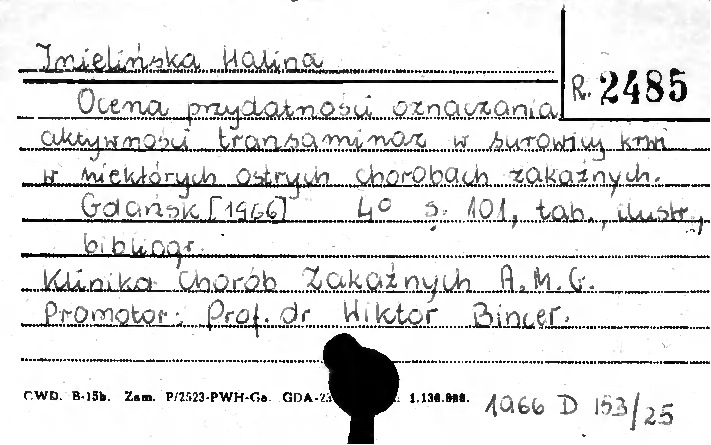 Imielińska Halina
R. 2485
Ocena przydatności oznaczania
aktywności transaminaz w surowicy krwi
w niektórych ostrych chorobach zakaźnych.
Gdańsk [1966] 4º s. 101, tab., ilustr.,
bibliogr.
Klinika Chorób Zakaźnych A.M.G.
Promotor: Prof. dr Wiktor Bincer.
CWD. B-15b. Zam. P/2523-PWH-Ga. GDA-23 1.130.000.
1966 D 153/25